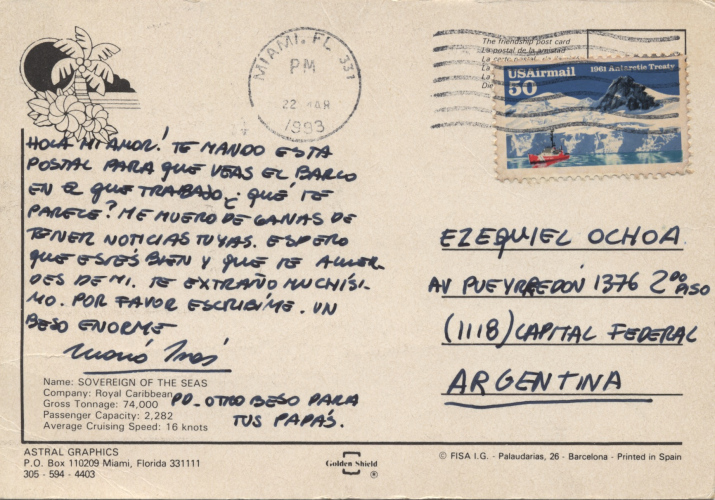 MIAMI, FL 331
PM
22 MAR
1993
The friendship post card
La postal de la amistad
USAirmail
50
1961 Antarctic Treaty
HOLA MI AMOR! TE MANDO ESTA
POSTAL PARA QUE VEAS EL BARCO
EN EL QUE TRABAJO ¿QUÉ TE
PARECE? ME MUERO DE GANAS DE
TENER NOTICIAS TUYAS. ESPERO
QUE ESTÉS BIEN Y QUE TE ACUER-
DES DE MI. TE EXTRAÑO MUCHÍSI-
MO. POR FAVOR ESCRIBÍME. UN
BESO ENORME
María Inés
PD. OTRO BESO PARA
TUS PAPÁS.
EZEQUIEL OCHOA
AV PUEYRREDÓN 1376 2DO PISO
(1118) CAPITAL FEDERAL
ARGENTINA
Name: SOVEREIGN OF THE SEAS
Company: Royal Caribbean
Gross Tonnage: 74,000
Passenger Capacity: 2,282
Average Cruising Speed: 16 knots
ASTRAL GRAPHICS
P.O. Box 110209 Miami, Florida 331111
305 - 594 - 4403
Golden Shield
®
© FISA I.G. - Palaudarias, 26 - Barcelona - Printed in Spain